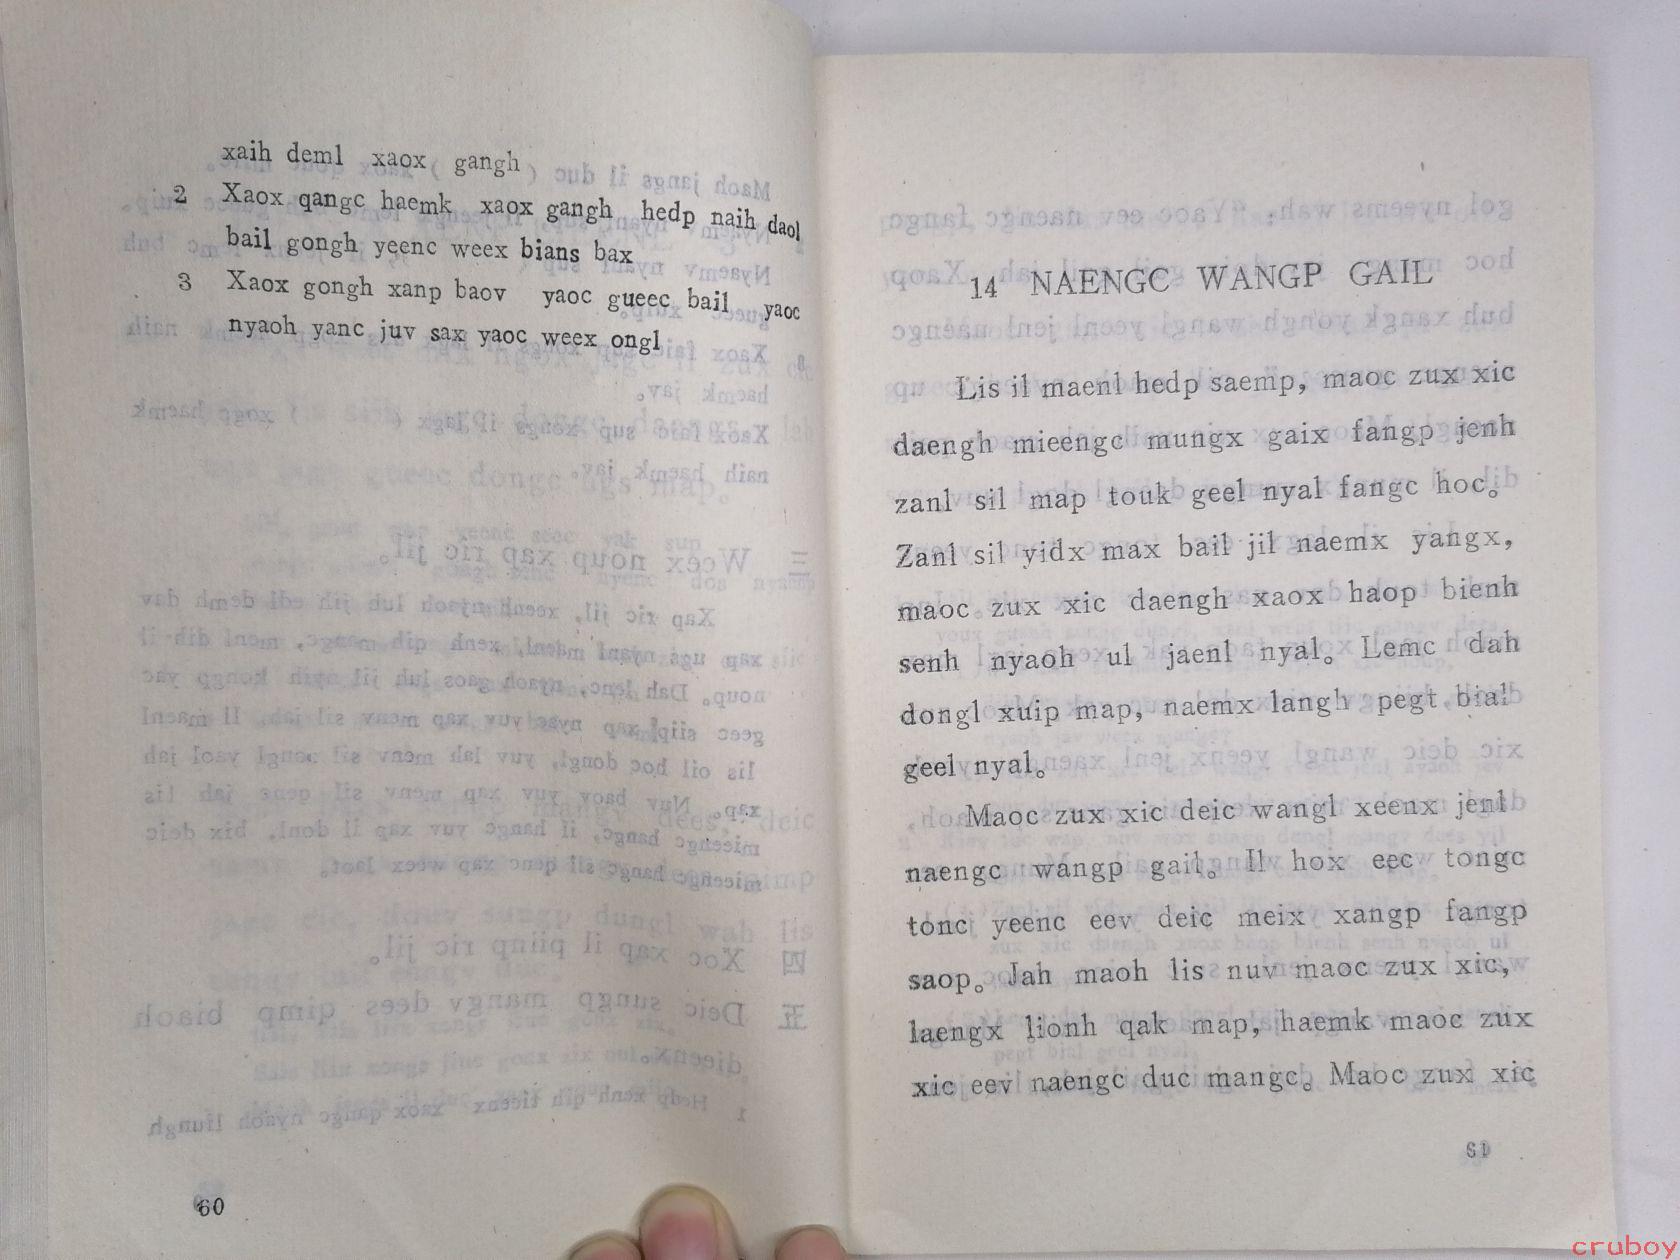 xaih deml xaox gangh
2 Xaox qangc haemk xaox gangh hedp naih daol
bail gongh yeenc weex bians bax
3 Xaox gongh xanp baov yaoc gueec bail yaoc
nyaoh yanc juv sax yaoc weex ongl
60
14 NAENGC WANGP GAIL
Lis il maenl hedp saemp, maoc zux xic
daengh mieengc mungx gaix fangp jenh
zanl sil map touk geel nyal fangc hoc。
Zanl sil yidx max bail jil naemx yangx,
maoc zux xic daengh xaox haop bienh
senh nyaoh ul jaenl nyal。 Lemc dah
dongl xuip map, naemx langh pegt bial
geel nyal。
Maoc zux xic deic wangl xeenx jenl
naengc wangp gail。 Il hox eec tongc
tonc yeenc eev deic meix xangp fangp
saop。 Jah maoh lis nuv maoc zux xic,
laengx lionh qak map, haemk maoc zux
xic eev naengc duc mangc。 Maoc zux xic
61
cruboy